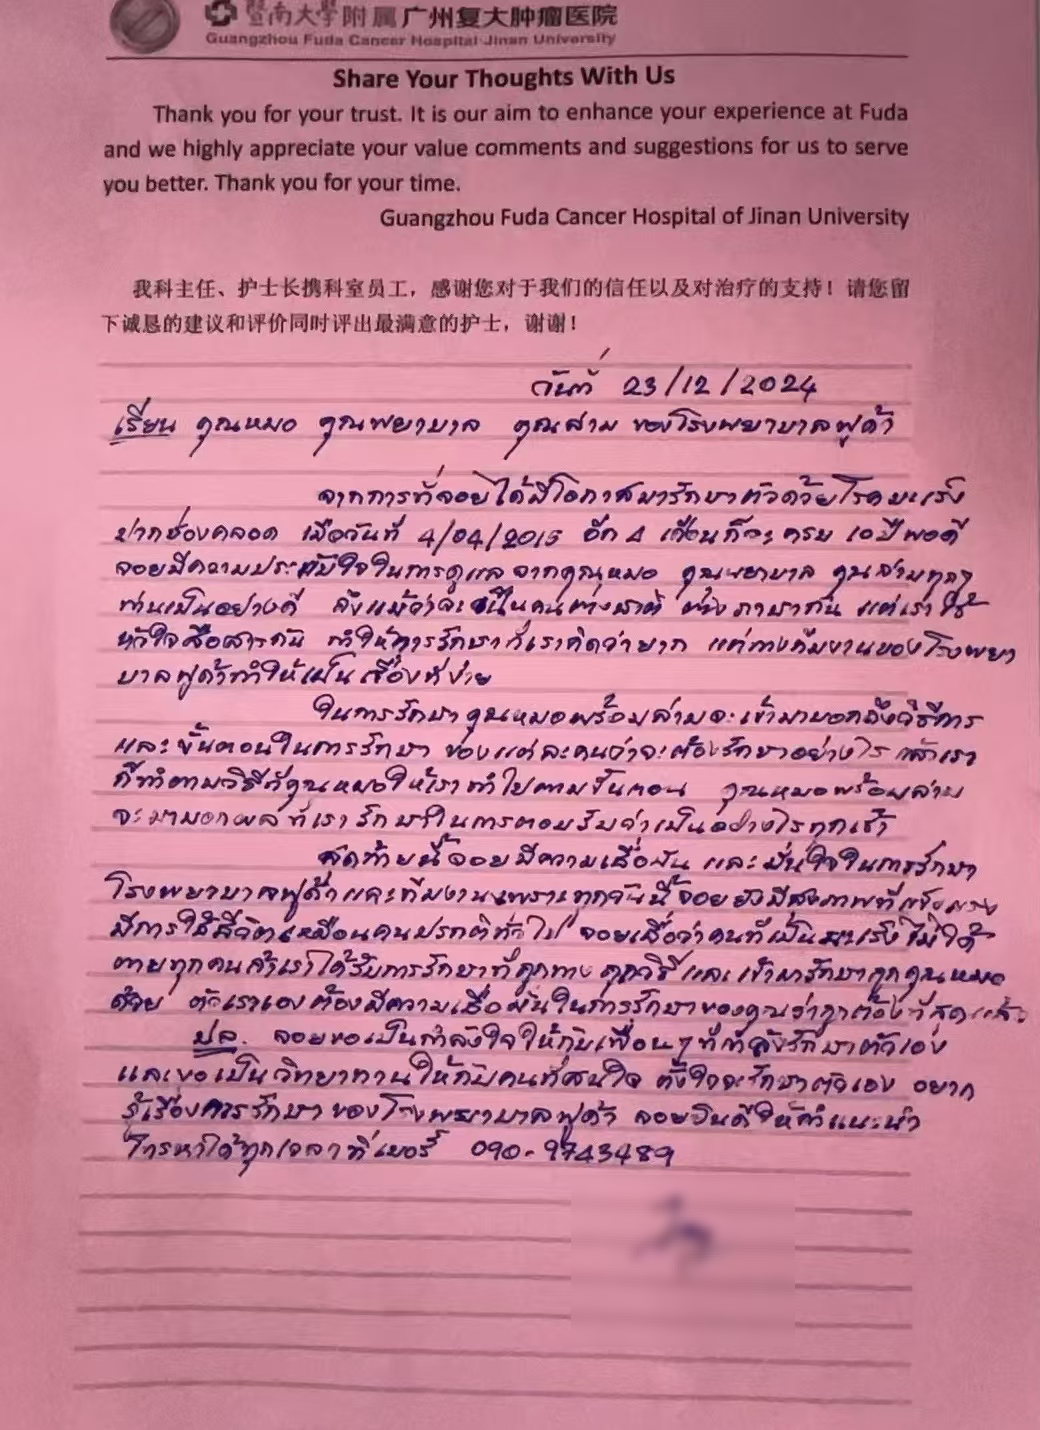 暨南大學附属广州复大肿瘤医院
Guangzhou Fuda Cancer Hospital Jinan University
Share Your Thoughts With Us
Thank you for your trust. It is our aim to enhance your experience at Fuda
and we highly appreciate your value comments and suggestions for us to serve
you better. Thank you for your time.
Guangzhou Fuda Cancer Hospital of Jinan University
我科主任、护士长携科室员工，感谢您对于我们的信任以及对治疗的支持！请您留
下诚恳的建议和评价同时评出最满意的护士，谢谢！
วันที่ 23/12/2024
เรียน คุณหมอ คุณพยาบาล คุณล่าม ของโรงพยาบาลฟูด้า
จากการที่จอยได้มีโอกาสมารักษาตัวด้วยโรคมะเร็ง
ปากช่องคลอด เมื่อวันที่ 4/04/2015 อีก 4 เดือนก็จะครบ 10 ปีพอดี
จอยมีความประทับใจในการดูแล จากคุณหมอ คุณพยาบาล คุณล่ามทุกๆ
ท่านเป็นอย่างดี ถึงแม้ว่าจะเป็นคนต่างชาติ ต่างภาษากัน แต่เราใช้
หัวใจสื่อสารกัน ทำให้การรักษาที่เราคิดว่ายาก แต่ทางทีมงานของโรงพยา
บาลฟูด้าทำให้เป็นเรื่องที่ง่าย
ในการรักษาคุณหมอพร้อมล่ามจะเข้ามาบอกถึงวิธีการ
และขั้นตอนในการรักษา ของแต่ละคนว่าจะต้องรักษาอย่างไร แล้วเรา
ก็ทำตามวิธีที่คุณหมอให้เราทำไปตามขั้นตอน คุณหมอพร้อมล่าม
จะมาบอกผลที่เรารักษาในการตอบรับว่าเป็นอย่างไรทุกเช้า
สุดท้ายนี้จอยมีความเชื่อมั่น และมั่นใจในการรักษา
โรงพยาบาลฟูด้าและทีมงานเพราะทุกวันนี้จอยยังมีสุขภาพที่แข็งแรง
มีการใช้ชีวิตเหมือนคนปรกติทั่วไป จอยเชื่อว่าคนที่เป็นมะเร็งไม่ได้
ตายทุกคนถ้าเราได้รับการรักษาที่ถูกทาง ถูกวิธี และเข้ามารักษาถูกคุณหมอ
ด้วย ตัวเราเองต้องมีความเชื่อมั่นในการรักษาของคุณว่าถูกต้องที่สุดแล้ว
ปล. จอยขอเป็นกำลังใจให้กับเพื่อนๆที่กำลังรักษาตัวเอง
และขอเป็นวิทยาทานให้กับคนที่สนใจ ตั้งใจจะรักษาตัวเอง อยาก
รู้เรื่องการรักษาของโรงพยาบาลฟูด้า จอยยินดีให้คำแนะนำ
โทรหาได้ทุกเวลาที่เบอร์ 090-9743489